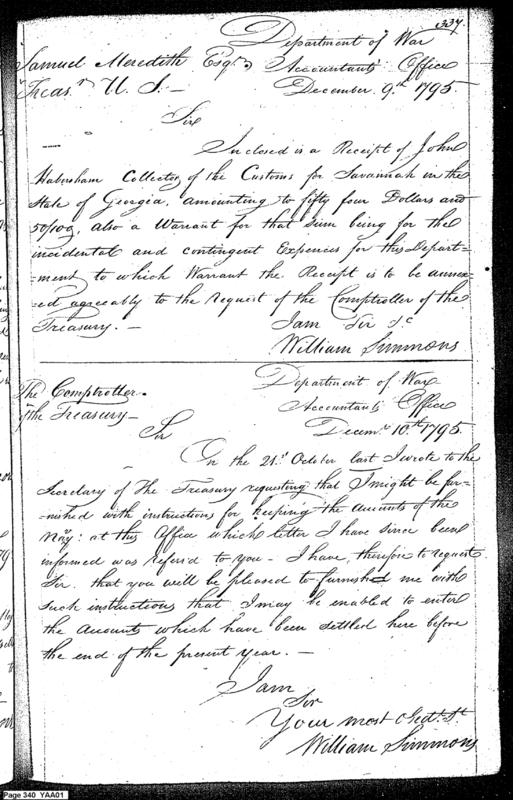 337.
Department of War
Samuel Meredith Esqr. Accountants Office
Treasr. U. S. — December 9th. 1795
Sir
Inclosed is a Receipt of John
Habersham Collector of the Customs for Savannah in the
State of Georgia, amounting to fifty four Dollars and
50/100, also a Warrant for that Sum being for the
incidental and contingent Expences for this Depart=
=ment, to which Warrant the Receipt is to be annex=
=ed agreeably to the request of the Comptroller of the
Treasury. — I am Sir &c
William Simmons
Department of War
The Comptroller Accountants Office
of the Treasury — Decemr. 10th. 1795.
Sir
On the 21st. October last I wrote to the
Secretary of the Treasury requesting that I might be fur=
=nished with instructions for keeping the accounts of the
Navy: at this Office which letter I have since been
informed was referd to you — I have, therefore to request
Sir. that you will be pleased to furnish me with
such instructions that I may be enabled to enter
the Accounts which have been settled here before
the end of the present year. —
I am
Sir
Your most Obedt. St.
William Simmons
Page 340 YAA01